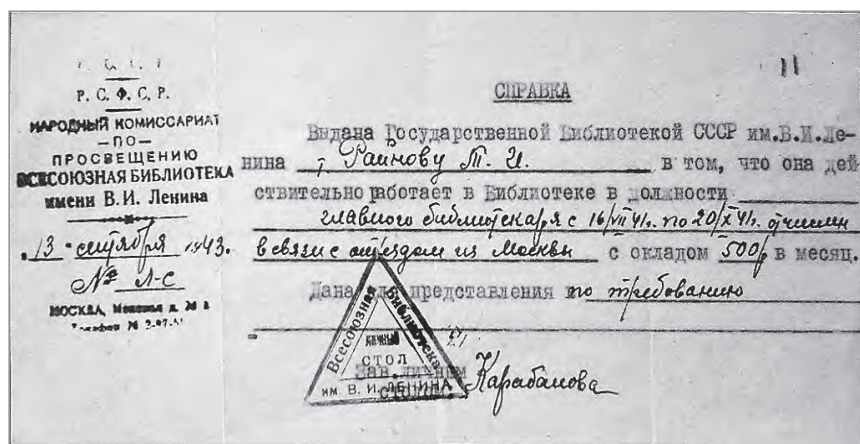 11
Р. С. Ф. С. Р.
НАРОДНЫЙ КОМИССАРИАТ
—ПО—
ПРОСВЕЩЕНИЮ
ВСЕСОЮЗНАЯ БИБЛИОТЕКА
имени В. И. Ленина
„13 " сентября 1943.
№ Л-С
МОСКВА, Моховая д. № 3
СПРАВКА
Выдана Государственной Библиотекой СССР им.В.И.Ле-
нина т. Раинову Т. И. в том, что она дей
ствительно работает в Библиотеке в должности
главного библиотекаря с 16/VII 41г. по 20/X 41г. отчислен
в связи с отъездом из Москвы с окладом 500р в месяц.
Дана для представления по требованию
Всесоюзная Библиотека
ЛИЧНЫЙ
СТОЛ
им. В. И. ЛЕНИНА
Зав.личным
столом Карабанова